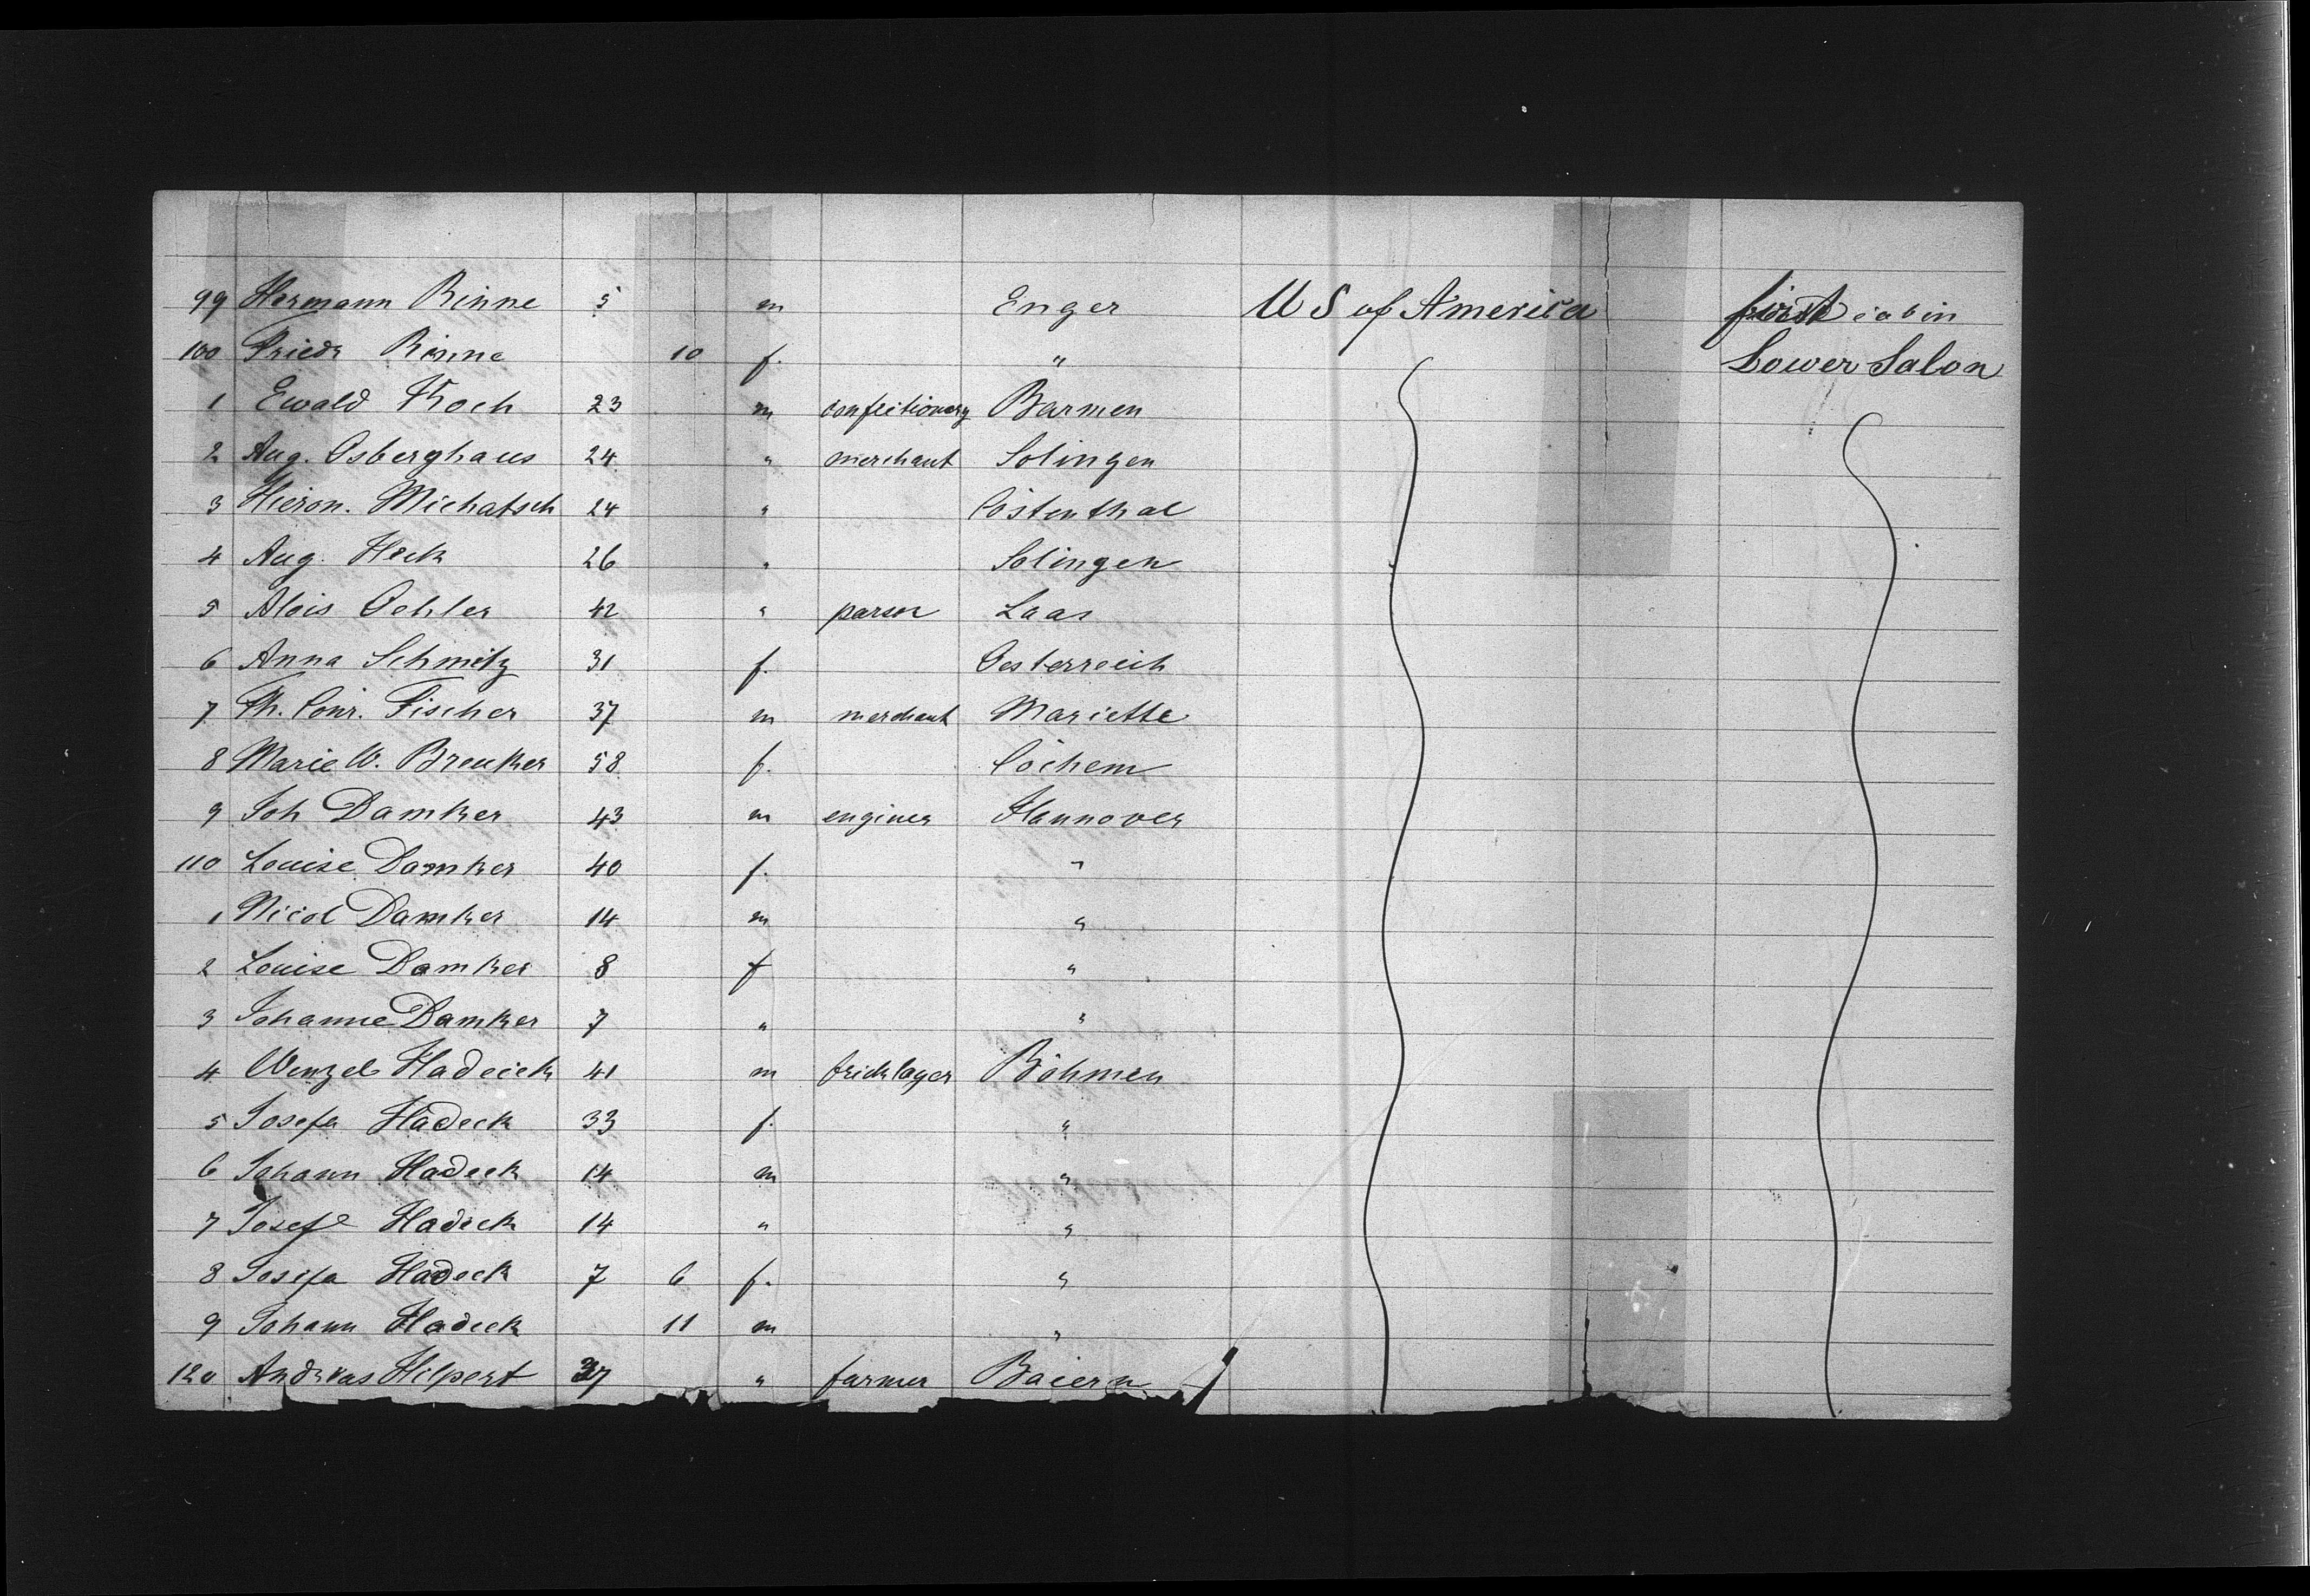 99 Hermann Rinne 5 m Enger U S of America first cabin
100 Friedr Rinne 10 f. " Lower Salon
1 Ewald Koch 23 m confectionery Barmen
2 Aug. Osberghaus 24 " merchant Solingen
3 Hieron. Michatsch 24 " Cöstenthal
4 Aug. Heck 26 " Solingen
5 Alois Oehler 42 " parson Laas
6 Anna Schmitz 31 f. Oesterreich
7 Th. Conr. Fischer 37 m merchant Mariette
8 Marie W. Breuker 58 f. Cöchem
9 Joh Damker 43 m enginer Hannover
110 Louise Damker 40 f. "
1 Nicol Damker 14 m "
2 Louise Damker 8 f "
3 Johanne Damker 7 " "
4 Wenzel Hadeick 41 m bricklager Böhmen
5 Josefa Hadeck 33 f. "
6 Johann Hadeck 14 m "
7 Josef Hadeck 14 " "
8 Josefa Hadeck 7 6 f. "
9 Johann Hadeck 11 m "
120 Andreas Hilpert 37 " farmer Baiern